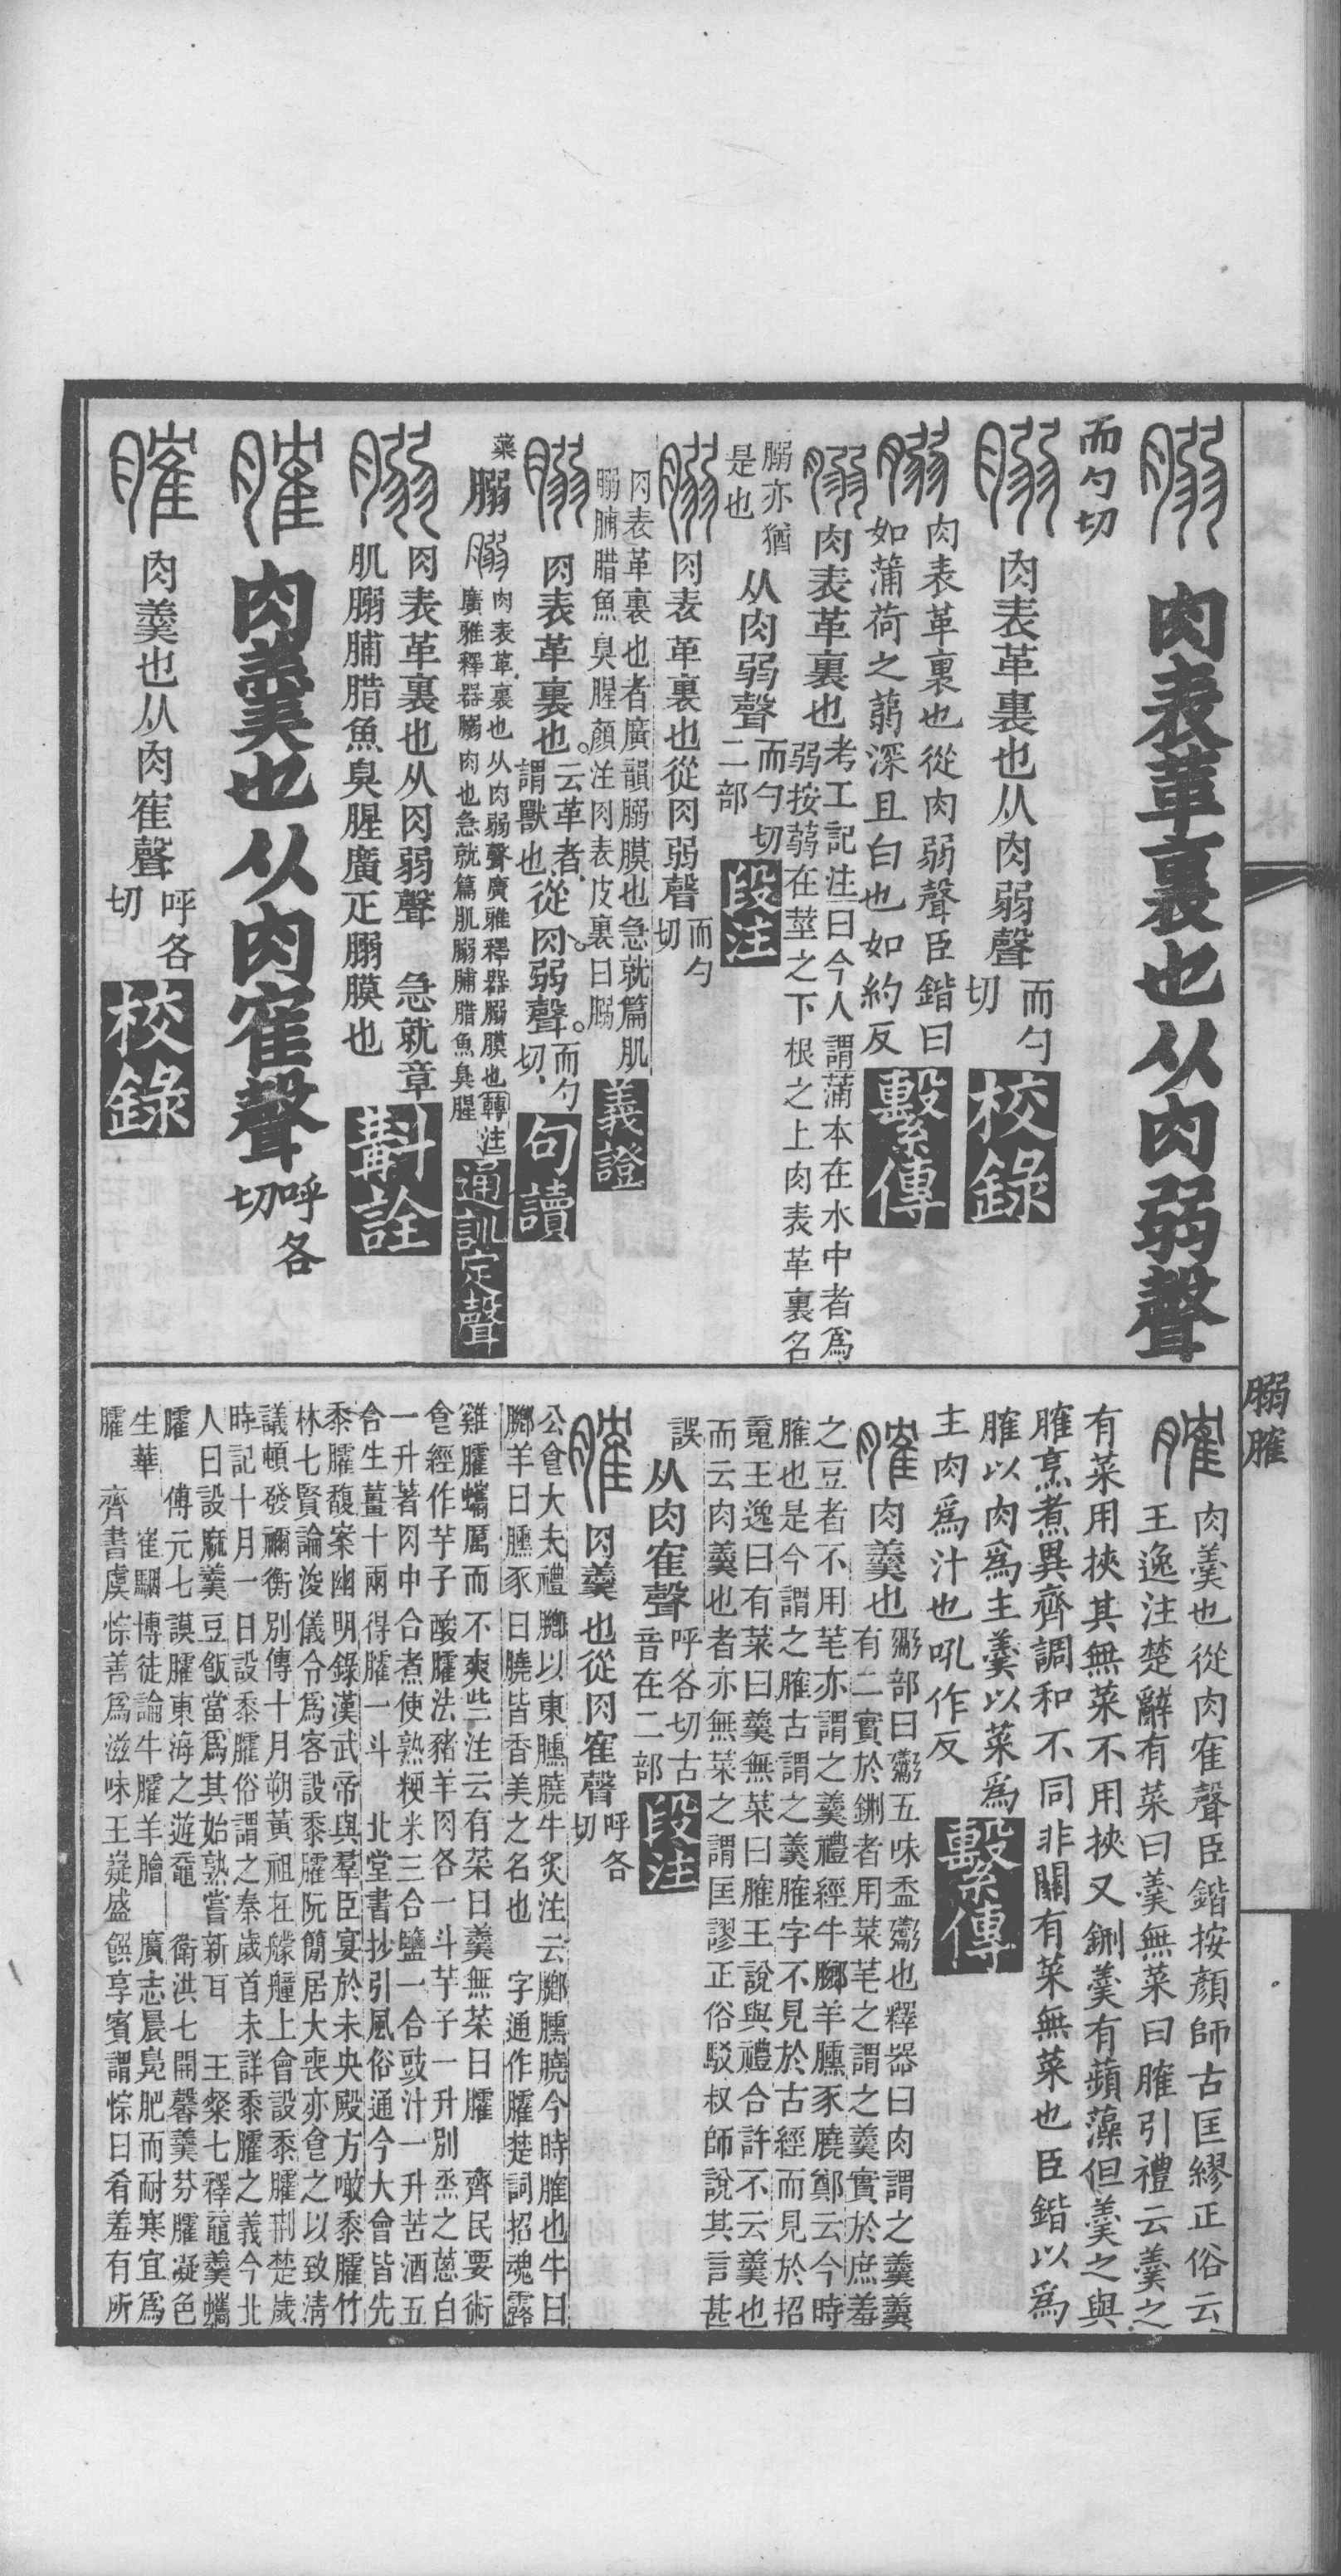 膈脽
䐞 肉表革裏也从肉弱聲
而勺切
䐞 肉表革裏也从肉弱聲 而勺切 校錄
䐞 肉表革裏也從肉弱聲臣鍇曰
如蒲荷之蒻深且白也如約反 繫傳
䐞 肉表革裏也 考工記注曰今人謂蒲本在水中者爲
弱按蒻在莖之下根之上肉表革裏名
䐞亦猶
是也 从肉弱聲 而勺切
二部 段注
䐞 肉表革裏也從肉弱聲 而勺
切
肉表革裏也者廣韻䐞膜也急就篇肌
䐞脯腊魚臭腥顏注肉表皮裏曰䐞 義證
䐞 肉表革裏也。云革者、
謂獸也從肉。弱聲。而勺
切、 句讀
藥 䐞 䐞 肉表革裏也从肉弱聲廣雅釋器䐞膜也轉注
廣雅釋器䐞肉也急就篇肌䐞脯腊魚臭腥 通訓定聲
䐞 肉表革裏也从肉弱聲 急就章
肌䐞脯腊魚臭腥廣疋䐞膜也 斠詮
脽 肉羹也从肉隺聲 呼各
切
脽 肉羹也从肉隺聲 呼各
切 校錄
臛 肉羹也從肉隺聲臣鍇按顏師古匡繆正俗云
王逸注楚辭有菜曰羹無菜曰臛引禮云羹之
有菜用挾其無菜不用挾又鉶羹有蘋藻但羹之與
臛烹煮異齊調和不同非關有菜無菜也臣鍇以爲
臛以肉爲主羹以菜爲
主肉爲汁也吼作反 繫傳
肉羹也 䰜部曰䰞五味盉䰞也釋器曰肉謂之羹羹
有二實於鉶者用菜芼之謂之羹實於庶羞
之豆者不用芼亦謂之羹禮經牛膷羊臐豕膮鄭云今時
臛也是今謂之臛古謂之羹臛字不見於古經而見於招
䰟王逸曰有菜曰羹無菜曰臛王說與禮合許不云羹也
而云肉羹也者亦無菜之謂匡謬正俗駁叔師說其言甚
誤 从肉隺聲 呼各切古
音在二部 段注
肉羹也從肉隺聲 呼各
切
公食大夫禮膷以東臐膮牛炙注云膷臐膮今時臛也牛曰
膷羊曰臐豕曰膮皆香美之名也 字通作臛楚詞招魂露
雞臛蠵厲而不爽些注云有菜曰羹無菜曰臛 齊民要術
食經作芋子酸臛法豬羊肉各一斗芋子一升別烝之蔥白
一升著肉中合煮使熟粳米三合鹽一合豉汁一升苦酒五
合生薑十兩得臛一斗 北堂書抄引風俗通今大會皆先
黍臛馥案幽明錄漢武帝與羣臣宴於未央殿方噉黍臛竹
林七賢論浚儀令爲客設黍臛阮簡居大喪亦食之以致清
議頓發禰衡別傳十月朔黃祖在艨艟上會設黍臛荆楚歲
時記十月一日設黍臛俗謂之秦歲首未詳黍臛之義今北
人曰設麻羹豆飯當爲其始熟嘗新耳 王粲七釋黿羹蠵
臛 傅元七謨臛東海之遊黿 衛洪七開馨羹芬臛凝色
生華 崔駰博徒論牛臛羊膾 廣志晨鳧肥而耐寒宜爲
臛 齊書虞悰善爲滋味王嶷盛饌享賓謂悰曰肴羞有所